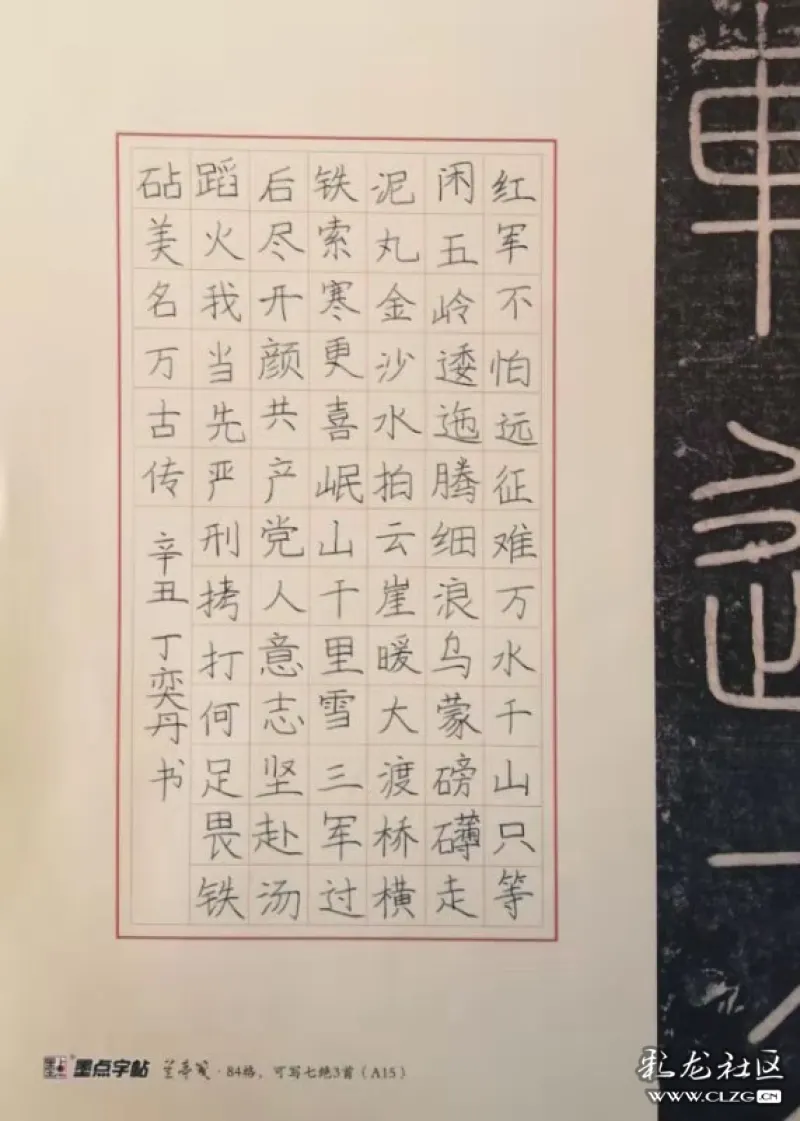 红军不怕远征难万水千山只等
闲五岭逶迤腾细浪乌蒙磅礴走
泥丸金沙水拍云崖暖大渡桥横
铁索寒更喜岷山千里雪三军过
后尽开颜共产党人意志坚赴汤
蹈火我当先严刑拷打何足畏铁
砧美名万古传
辛丑 丁奕丹 书
墨点字帖 兰亭笺·84格,可写七绝3首(A15)
彩龙社区
WWW.CLZG.CN